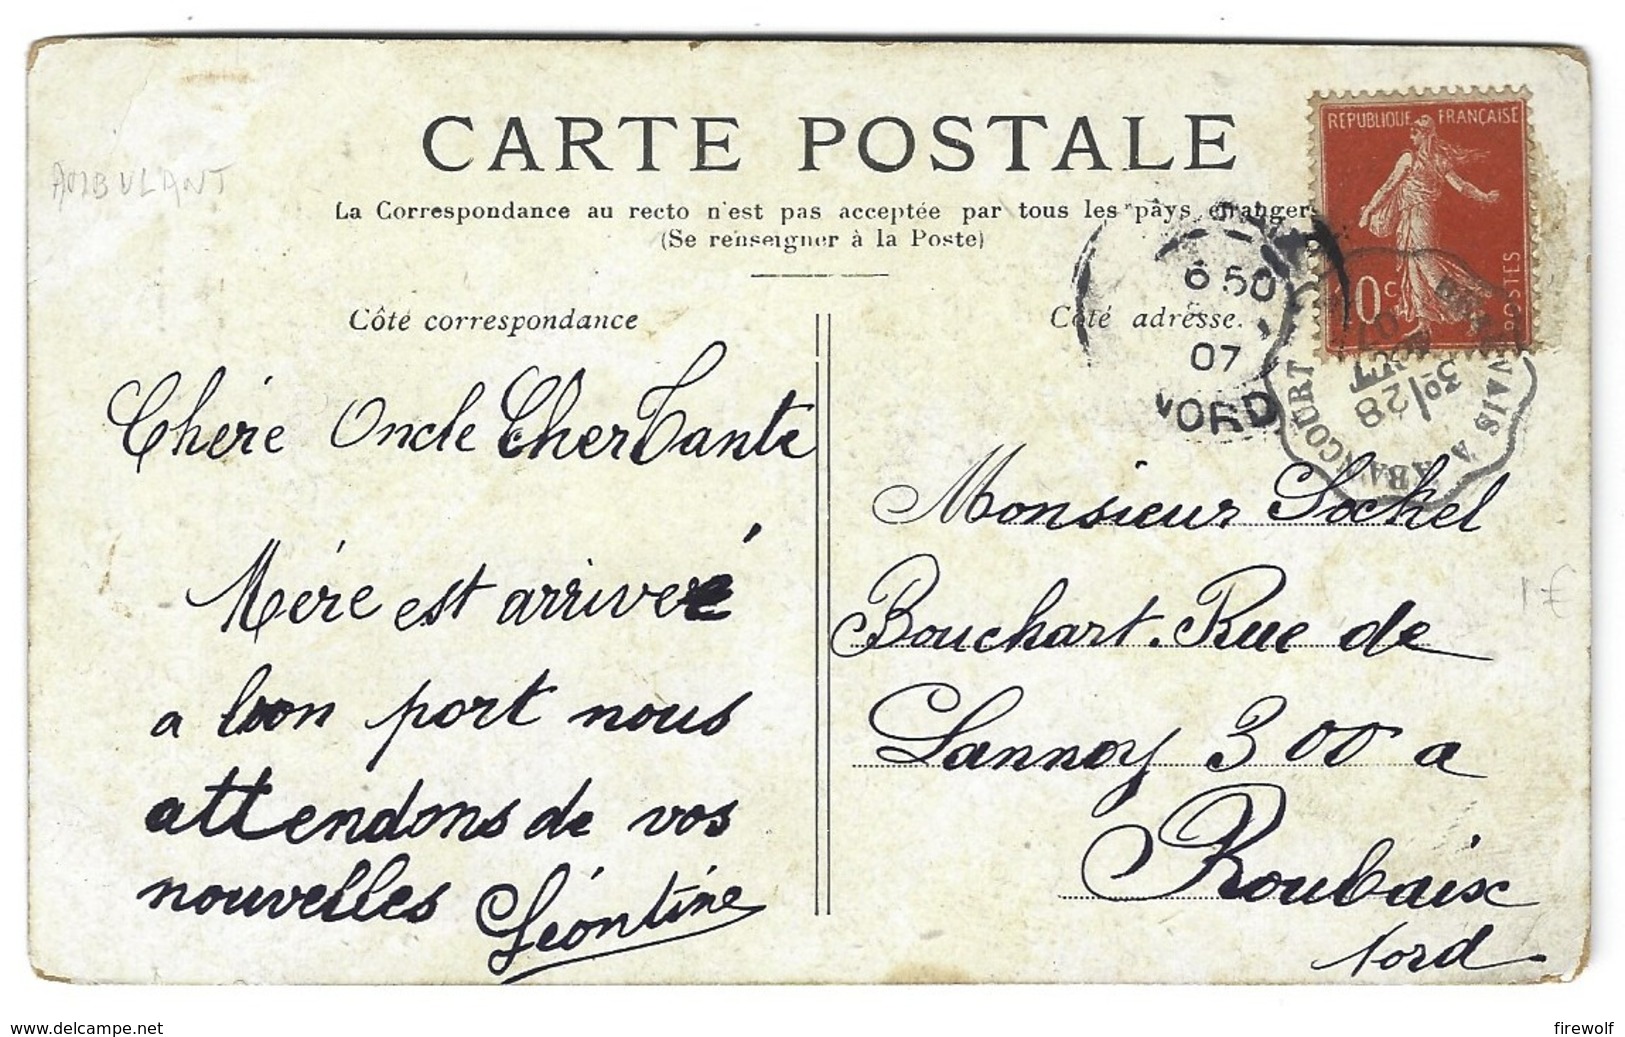 CARTE POSTALE
AMBULANT
La Correspondance au recto n'est pas acceptée par tous les pays étrangers
(Se renseigner à la Poste)
REPUBLIQUE FRANÇAISE
10 c
POSTES
6 50
07
NORD
A ABANCOURT
28
Côté correspondance
Chére Oncle Cher Tante
Mére est arriveé
a bon port nous
attendons de vos
nouvelles Léontine
Côté adresse.
Monsieur Sockel
Bouchart. Rue de
Lannoy 300 a
Roubaix
Nord
1 €
www.delcampe.net
firewolf